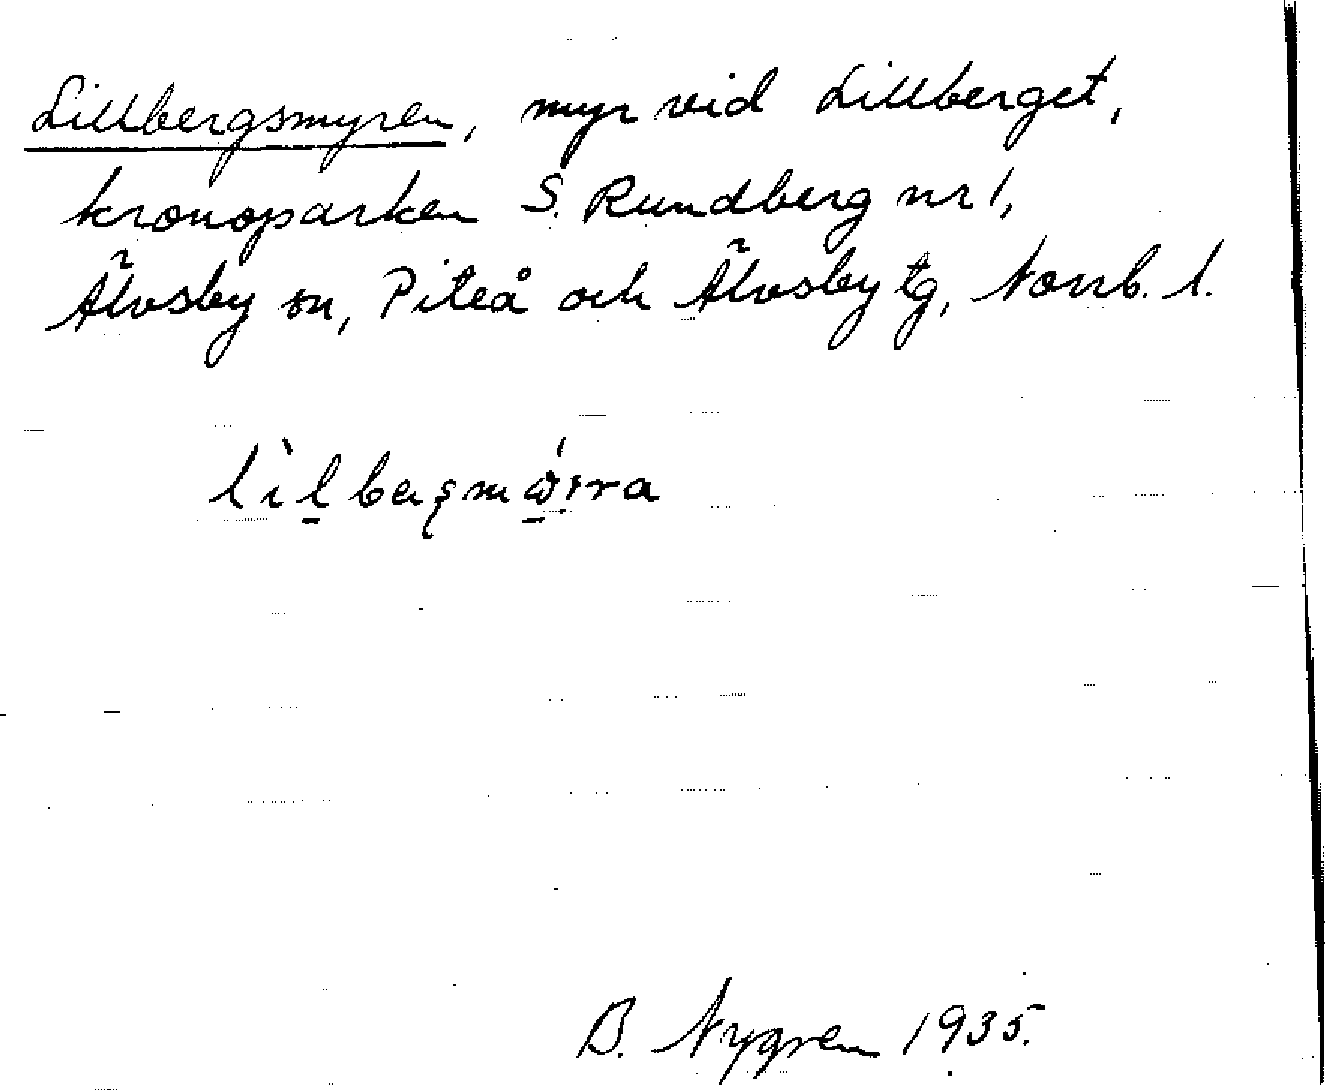 Lillbergsmyren, myr vid Lillberget,
kronoparken S. Rundberg nr 1,
Älvsby sn, Piteå och Älvsby tg, Norrb. l.
B. Nygren 1935.